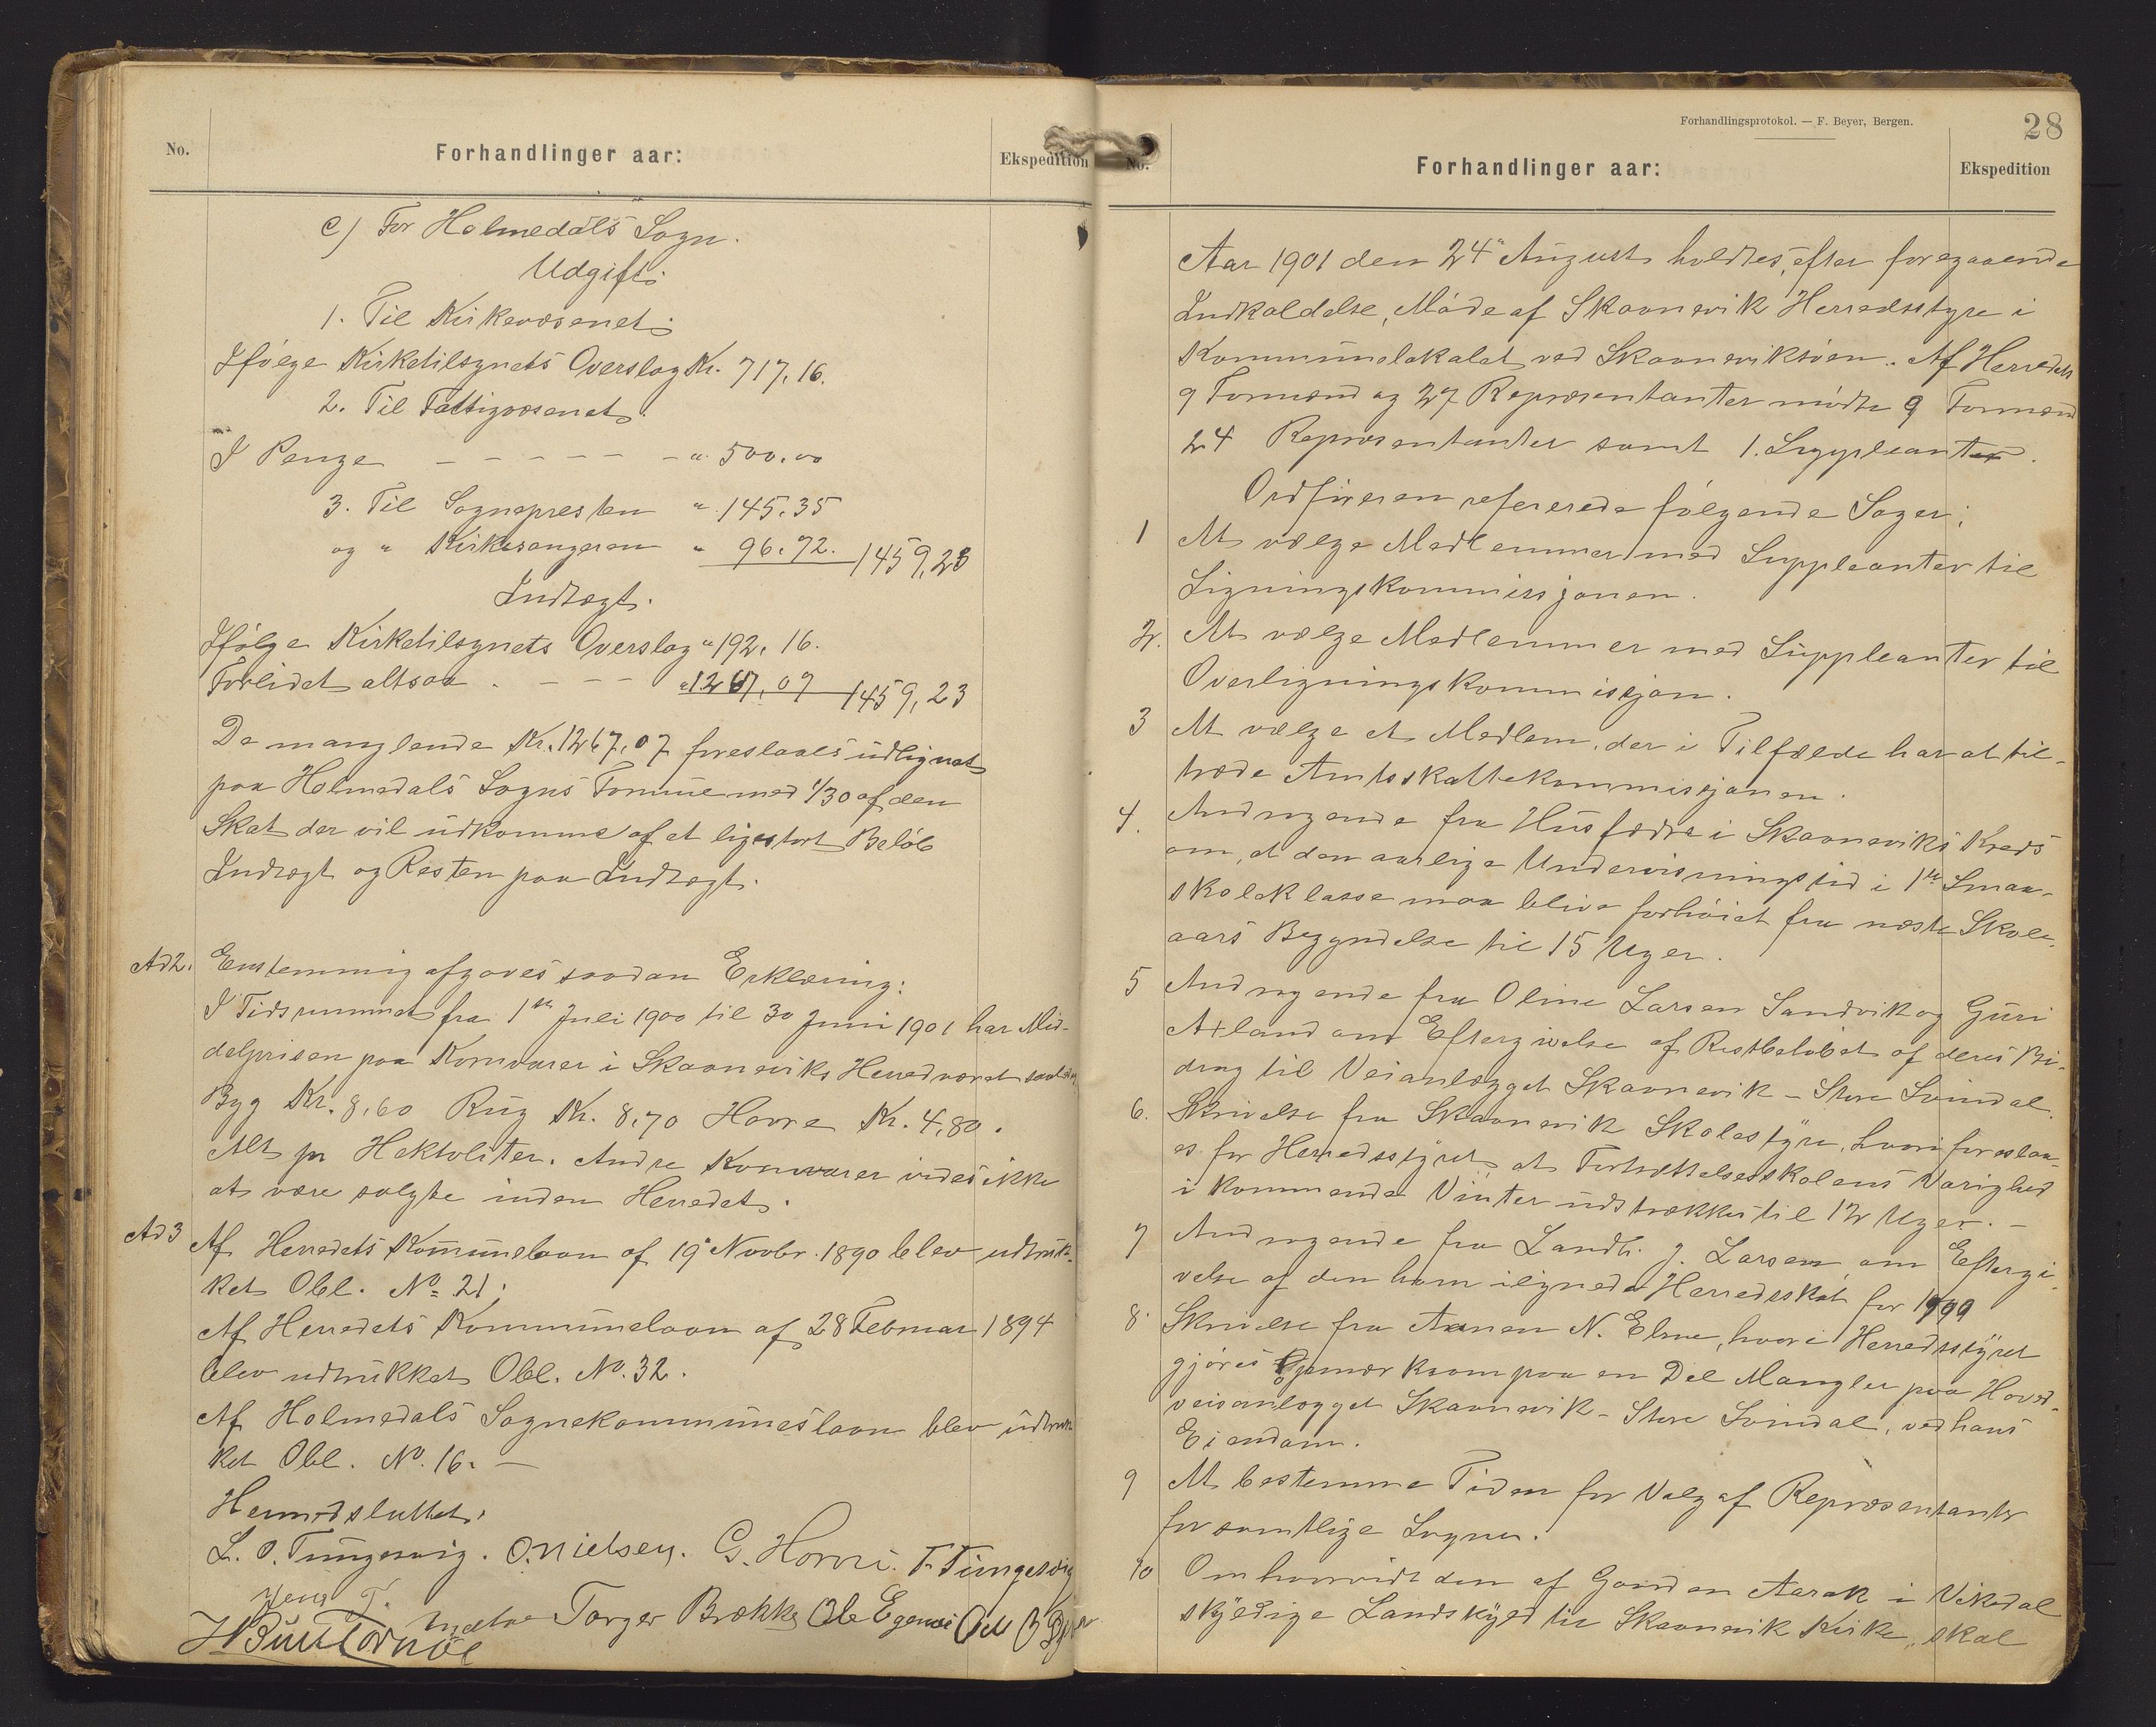 No.
Forhandlinger aar:
Ekspedition
c) For Holmedals Sogn.
Udgift:
1. Til Kirkevæsenet:
Ifølge Kirketilsynets Overslag Kr. 717,16.
2. Til Fattigvæsenet:
I Penge - - - - - - " 500.00
3. Til Sognepresten " 145.35
og " Kirkesangeren " 96.72. 1459,23
Indtægt.
Ifølge Kirketilsynets Overslag " 192.16.
Forlidet altsaa . - - - " 1267,07 1459,23
De manglende Kr. 1267,07 foreslaaes udlignet
paa Holmedals Sogns Formue med 1/30 af den
Skat der vil udkomme af et ligestort Beløb
Indtægt og Resten paa Indtægt.
Ad 2. Enstemmig afgaves saadan Erklæring:
I Tidsrummet fra 1ste Juli 1900 til 30 Juni 1901 har Mid-
delprisen paa Kornvarer i Skaaneviks Herred været saaledes
Byg Kr. 8,60 Rug Kr. 8,70 Havre Kr. 4,80.
Alt pr Hektoliter. Andre Kornvarer vides ikke
at være solgte inden Herredet.
Ad 3 Af Herredets Kommunelaan af 19" Novbr. 1890 blev udtruk-
ket Obl. No 21;
Af Herredets Kommunelaan af 28 Februar 1894
blev udtrukket Obl. No. 32.
Af Holmedals Sognekommuneslaan blev udtruk-
ket Obl. No. 16. -
Hermed sluttet.
L. O. Tungesvig. O. Nielsen. G. Horni. T. Tungesvig
Jens T. Torger Brække Ole Egenæs
Forhandlingsprotokol. — F. Beyer, Bergen.
28
No.
Forhandlinger aar:
Ekspedition
Aar 1901 den 24" August holdtes, efter foregaaende
Indkaldelse, Møde af Skaanevik Herredsstyre i
Kommunelokalet ved Skaaneviksøen. Af Herredets
9 Formænd og 27 Repræsentanter mødte 9 Formænd
24 Repræsentanter samt 1. Suppleanter.
Ordføreren refererede følgende Sager:
1 At vælge Medlemmer med Suppleanter til
Ligningskommissjonen.
2. At vælge Medlemmer med Suppleanter til
Overligningskommissjon.
3 At vælge et Medlem, der i Tilfælde har at til-
træde Amtsskattekommissjonen.
4. Andragende fra Husfædre i Skaaneviks Kreds
om, at den aarlige Undervisningstid i 1ste Smaa-
skoleklasse maa blive forhøiet fra næste Skole-
aars Begyndelse til 15 Uger.
5 Andragende fra Oline Larsen Sandvik og Guri
Axland om Eftergivelse af Restbeløbet af deres Bi-
drag til Veianlægget Skaanevik - Store Svindal.
6. Skrivelse fra Skaanevik Skolestyre, hvori foreslaa-
es for Herredsstyret at Fortsættelsesskolens Varighed
i kommende Vinter udstrækkes til 12 Uger. -
7 Andragende fra Landh. J. Larsen om Eftergi-
velse af den ham ilignede Herredsskat for 1899
8. Skrivelse fra Aanen N. Elme, hvori Herredsstyret
gjøres opmærksom paa en Del Mangler paa Hoved-
veianlægget Skaanevik - Store Svindal, ved hans
Eiendom.
9 At bestemme Tiden for Valg af Repræsentanter
for samtlige Sogne.
10 Om hvorvidt den af Gaarden Aarak i Vikedal
skyldige Landskyld til Skaanevik Kirke, skal